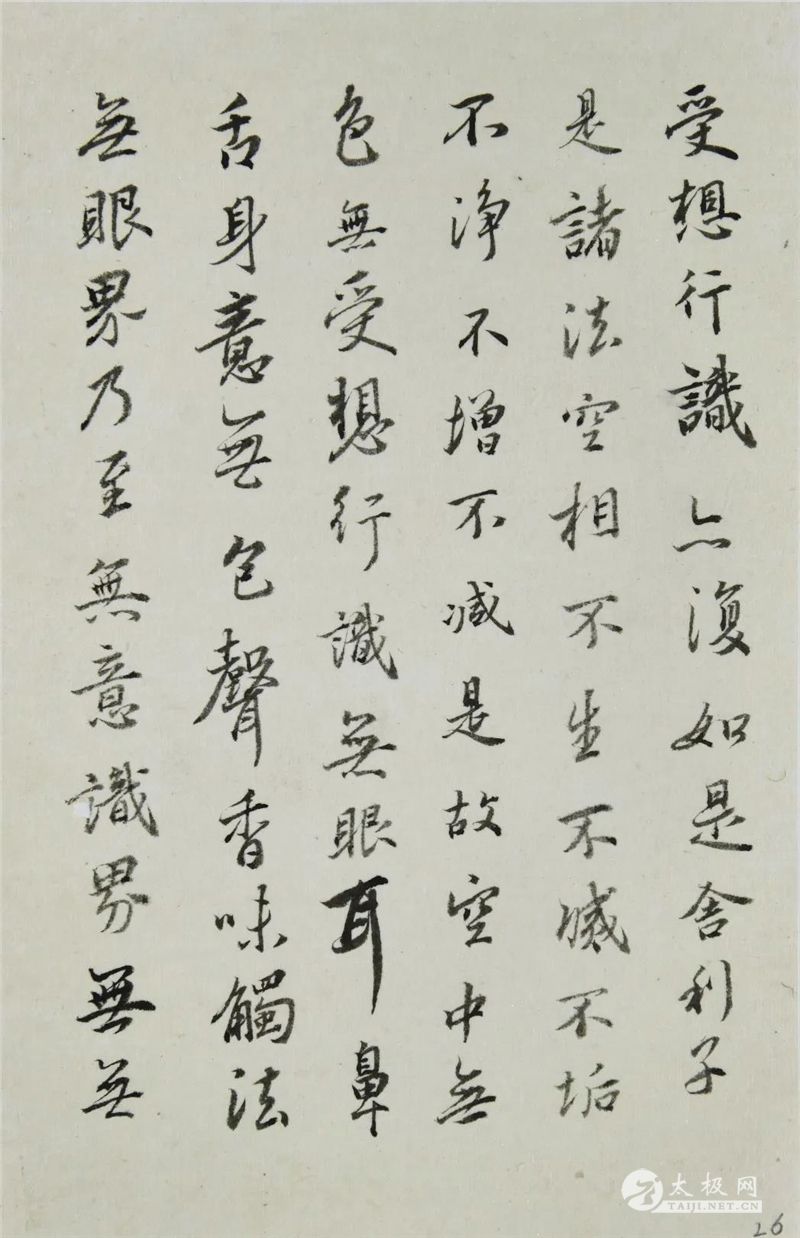 受想行識亦復如是舍利子
是諸法空相不生不滅不垢
不淨不增不减是故空中無
色無受想行識無眼耳鼻
舌身意無色聲香味觸法
無眼界乃至無意識界無無
太极网
TAIJI.NET.CN
26